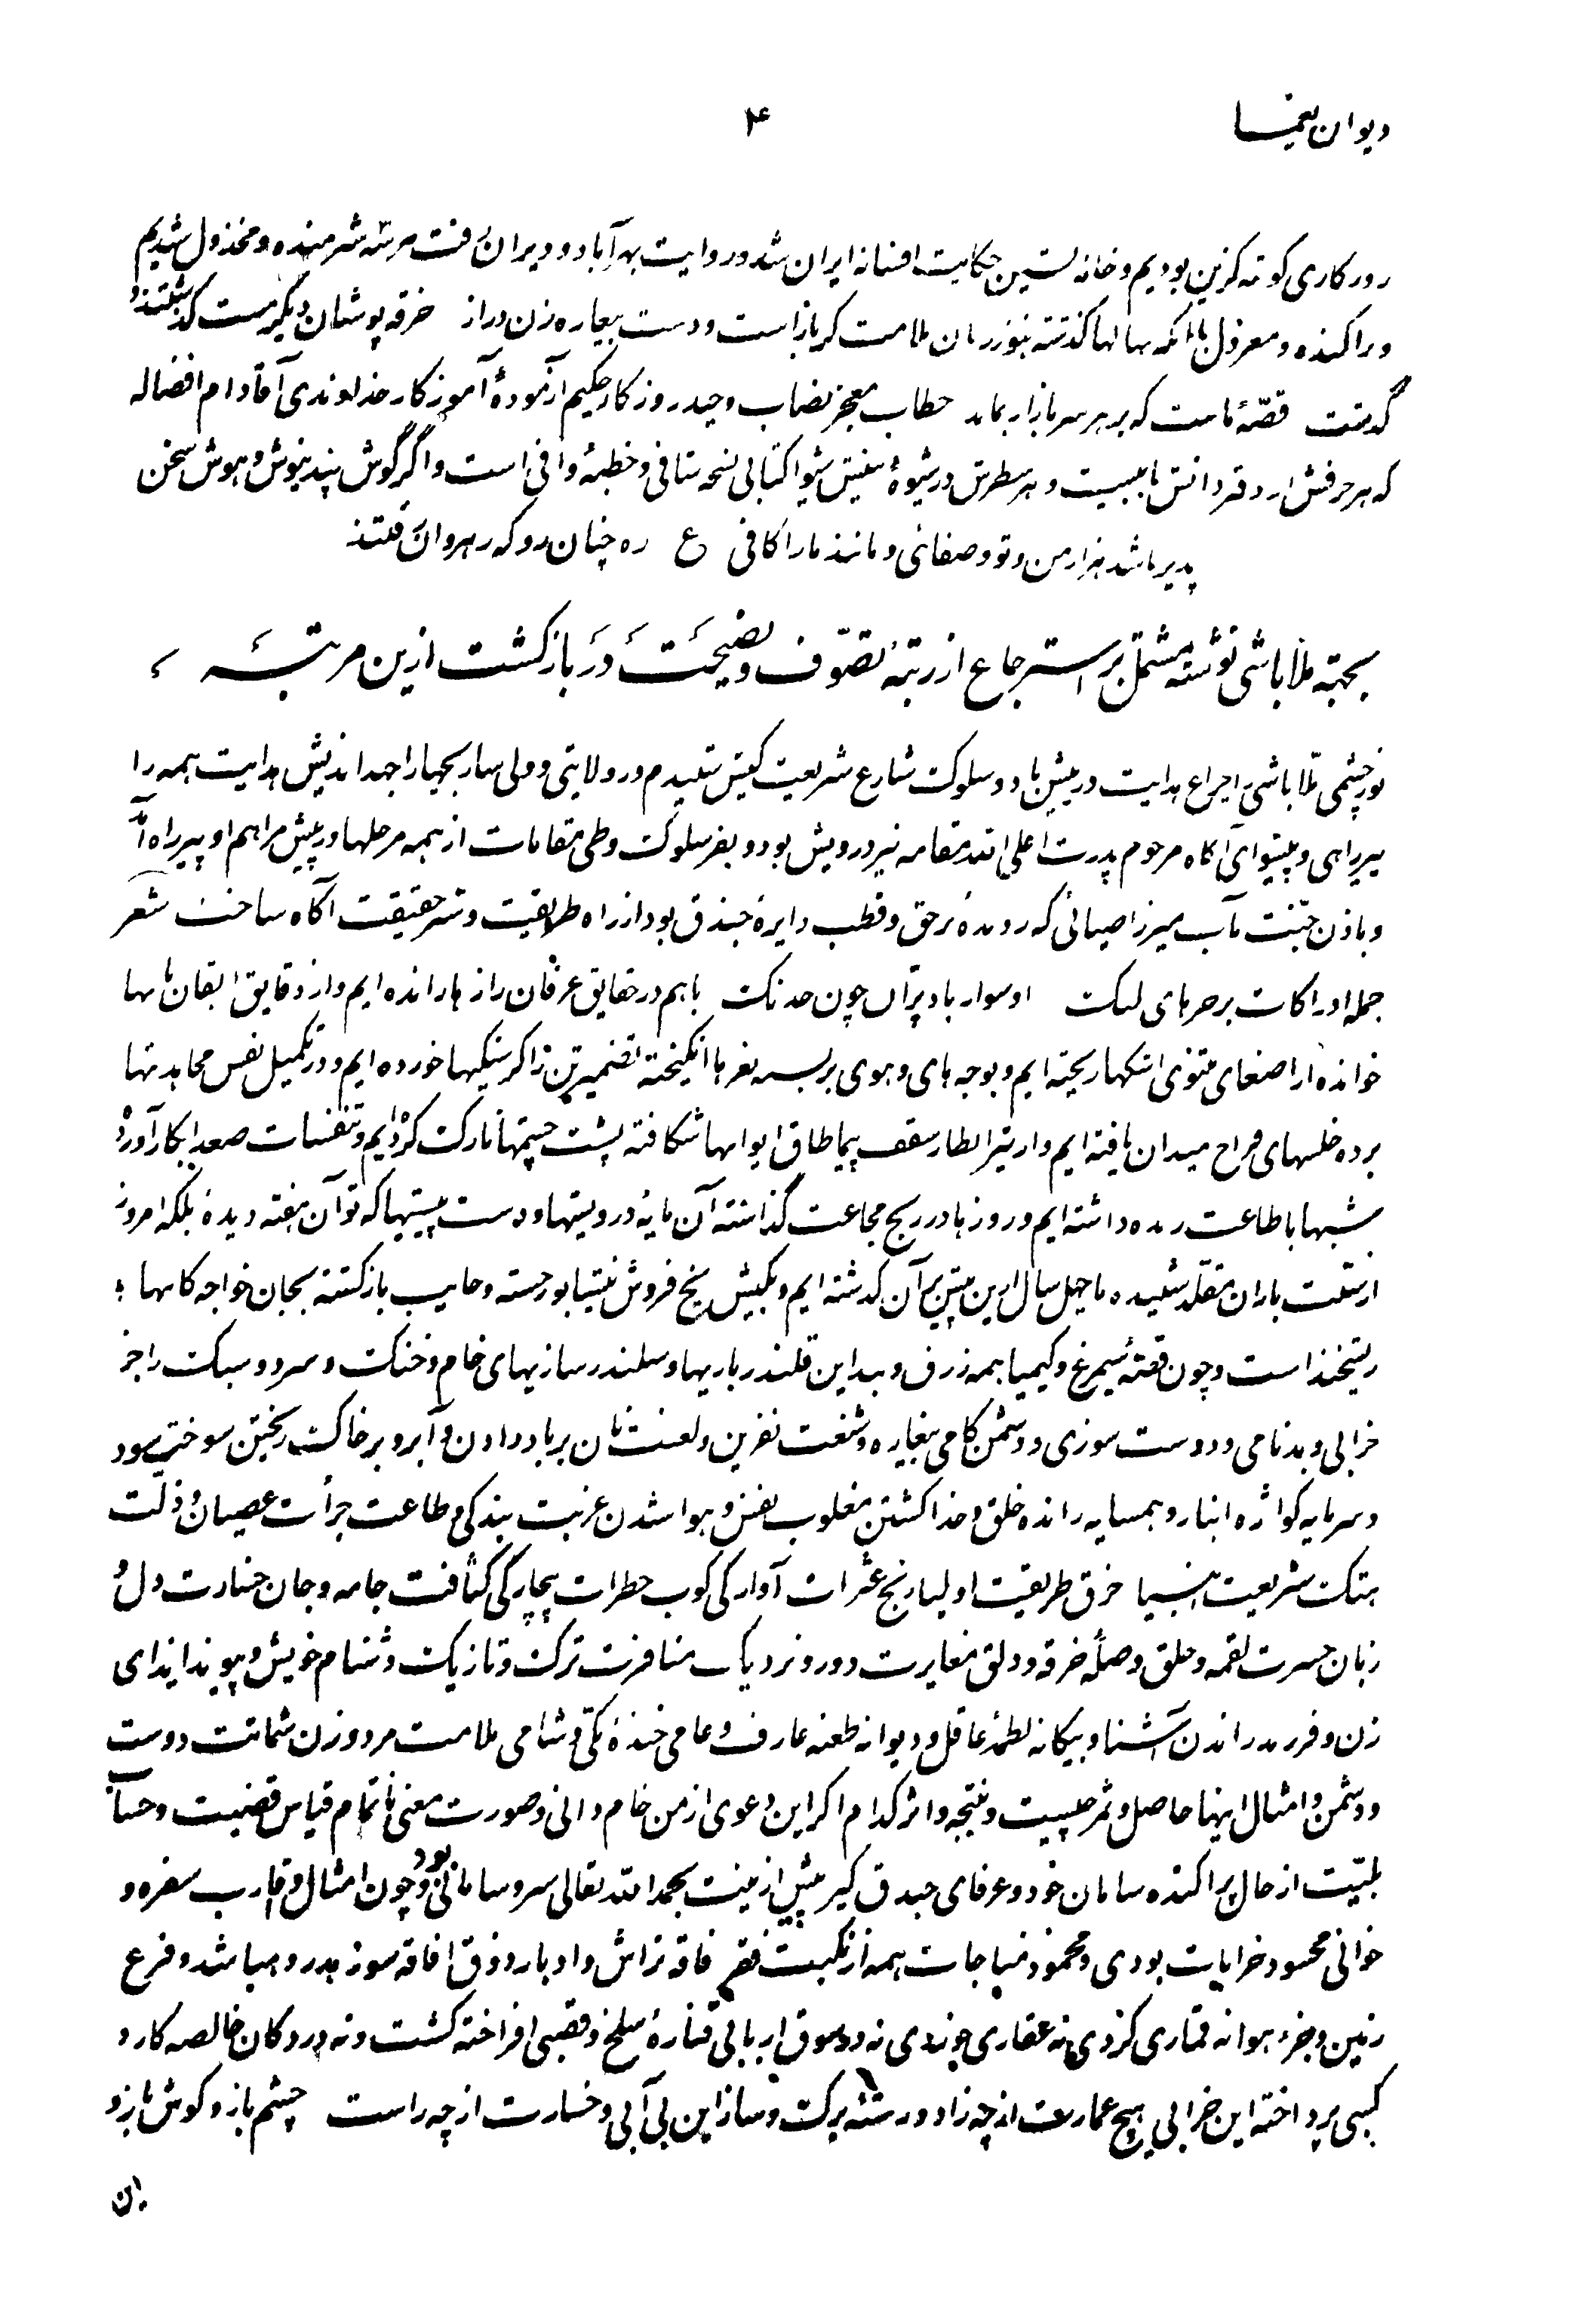 دیوان یغما
۴
روزکاری کوته کزین بودیم و خانه نشین حکایت افسانه ایران شد و روایت بهر آباد و ویران رفت هرشه شرمنده و مخذول شدیم
و پراکنده و معزول با آنکه سالها کذشته هنوز زبان ملامت کر باز است و دست بیغاره زن دراز خرقه پوشان دیگر مست کذشتند و
گذشت قصّهٔ ماست که بر هر سر بازار بماند خطاب معجز نصاب وحید روزکار حکیم آزمودهٔ آموزکار خداوندی آقا دام افضاله
که هر حرفش از دفتر دانش بابیست و هر سطرش در شیوهٔ بینش شیوا کتابی نسخه شافی و خطبهٔ وافی است و اگر گوش پند نیوش و هوش سخن
پذیر باشد هزار من و تو و صفائی و مانند ما را کافی ع ره چنان رو که رهروان رفتند
بجهته ملا باشی نوشته مشتمل بر استرجاع از رتبهٔ تصوّف و نصیحت در بازکشت ازین مرتبه
نور چشمی ملّا باشی را چراغ هدایت در پیش باد و سلوک شارع شریعت کیش شنیدم در ولایتی و ولی سار بجهار اجهد اندیش هدایت همه را
پیر راهی و پیشوای آکاه مرحوم پدرت اعلی الله مقامه نیز درویش بود و بفر سلوک و طی مقامات از همه مرحلها در پیش مرا هم او پیر راه آمد
و باذن جنّت مآب میرزا ضیائی که رونده برحق و قطب دایرهٔ صدق بود از راه طریقت و سرّ حقیقت آکاه ساخت شعر
جمله ادراکات بر خرهای لنک او سوار باد پرّان چون خدنک باهم در حقایق عرفان رازها رانده ایم و از دقایق ایقان بابها
خوانده از اصغای مثنوی اشکها ریخته ایم و بوجد های و هوی بربسته نعرها انکیخته از خمیر ترین ذاکر سنکها خورده ایم و در تکمیل نفس مجاهدتها
برده خلسهای فراخ میدان یافته ایم و از تیر انظار سقف پیما طاق ایوانها شکافته پشت چشمها نازک کرده ایم و تنفسات صعدا بکار آورده
شبها با طاعت زنده داشته ایم و روزها در رنج مجاعت گذاشته آن مایه درویشیها و دست پیشیها که تو آن هفته دیدهٔ بلکه امروز
از شصت یاران مقلّد شنیده ما چهل سال ازین پیش بر آن کذشته ایم و بکیش یخ فروش نیشابور خسته و خایب بازکشته بجان خواجه کاینها همه
ریشخند است و چون قصّهٔ سیمرغ و کیمیا همه زرق و بند این قلندر بازیها و سمندر سازیهای خام و خنک و سرد و سبک را جز
خرابی و بدنامی و دوست سوزی و دشمن کامی بیغاره و شنعت نفرین و لعنت نان بر باد دادن و آبرو بر خاک ریختن سوختن سود
و سرمایه کواژه انباز و همسایه رانده خلق و خدا کشتن مغلوب نفس و هوا شدن عزبت بندکی و طاعت جرأت عصیان و ذلّت
هتک شریعت انبیا خرق طریقت اولیا رنج عثرات آوارکی کوب خطرات بیچارکی کثافت جامه و جان خسارت دل و
زبان حسرت لقمه و حلق وصلهٔ خرقه و دلق مغایرت دور و نزدیک منافرت ترک و تازیک دشنام خویش و پیوند ایذای
زن و فرزند راندن آشنا و بیکانه لطمهٔ عاقل و دیوانه طعنه عارف و عامی خندهٔ مکّی و شامی ملامت مرد و زن شماتت دوست
و دشمن و امثال اینها حاصل و ثمر چیست و نتیجه و اثر کدام اکر این دعوی از من خام دانی و صورت معنی ناتمام قیاس قضیت و حساب
بلیّت از حال پراکنده سامان خود و عرفای صدق کیر پیش ازینت بحمد الله تعالی سر و سامانی بود و چون امثال و اقارب سفره و
خوانی محسود خرابات بودی و محمود مناجات همه از نکبت فقر فاقه تراش و ادبار ذوق افاقه سوز هدر و هبا شد و فرع
زمین و جزء هوا نه قماری کردی نه عقاری چریدی نه در سوق اربابی قنارهٔ سلخ و قصبی افراخته کشت و نه در دکان خالصه کار و
کسبی پرداخته این خرابی هیچ عمارت از چه زاد و رشتهٔ برک و ساز این بی آبی و خسارت از چه راست چشم باز و کوش باز و
این